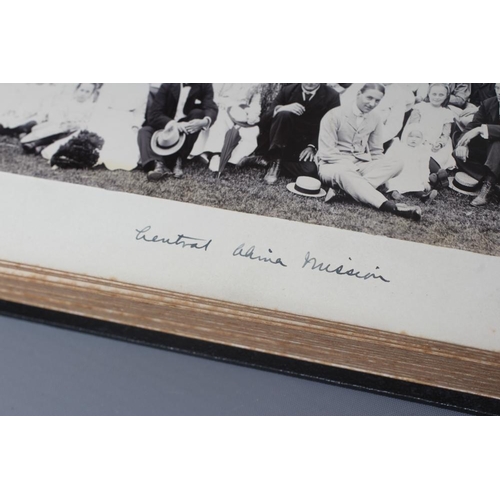 Central China Mission